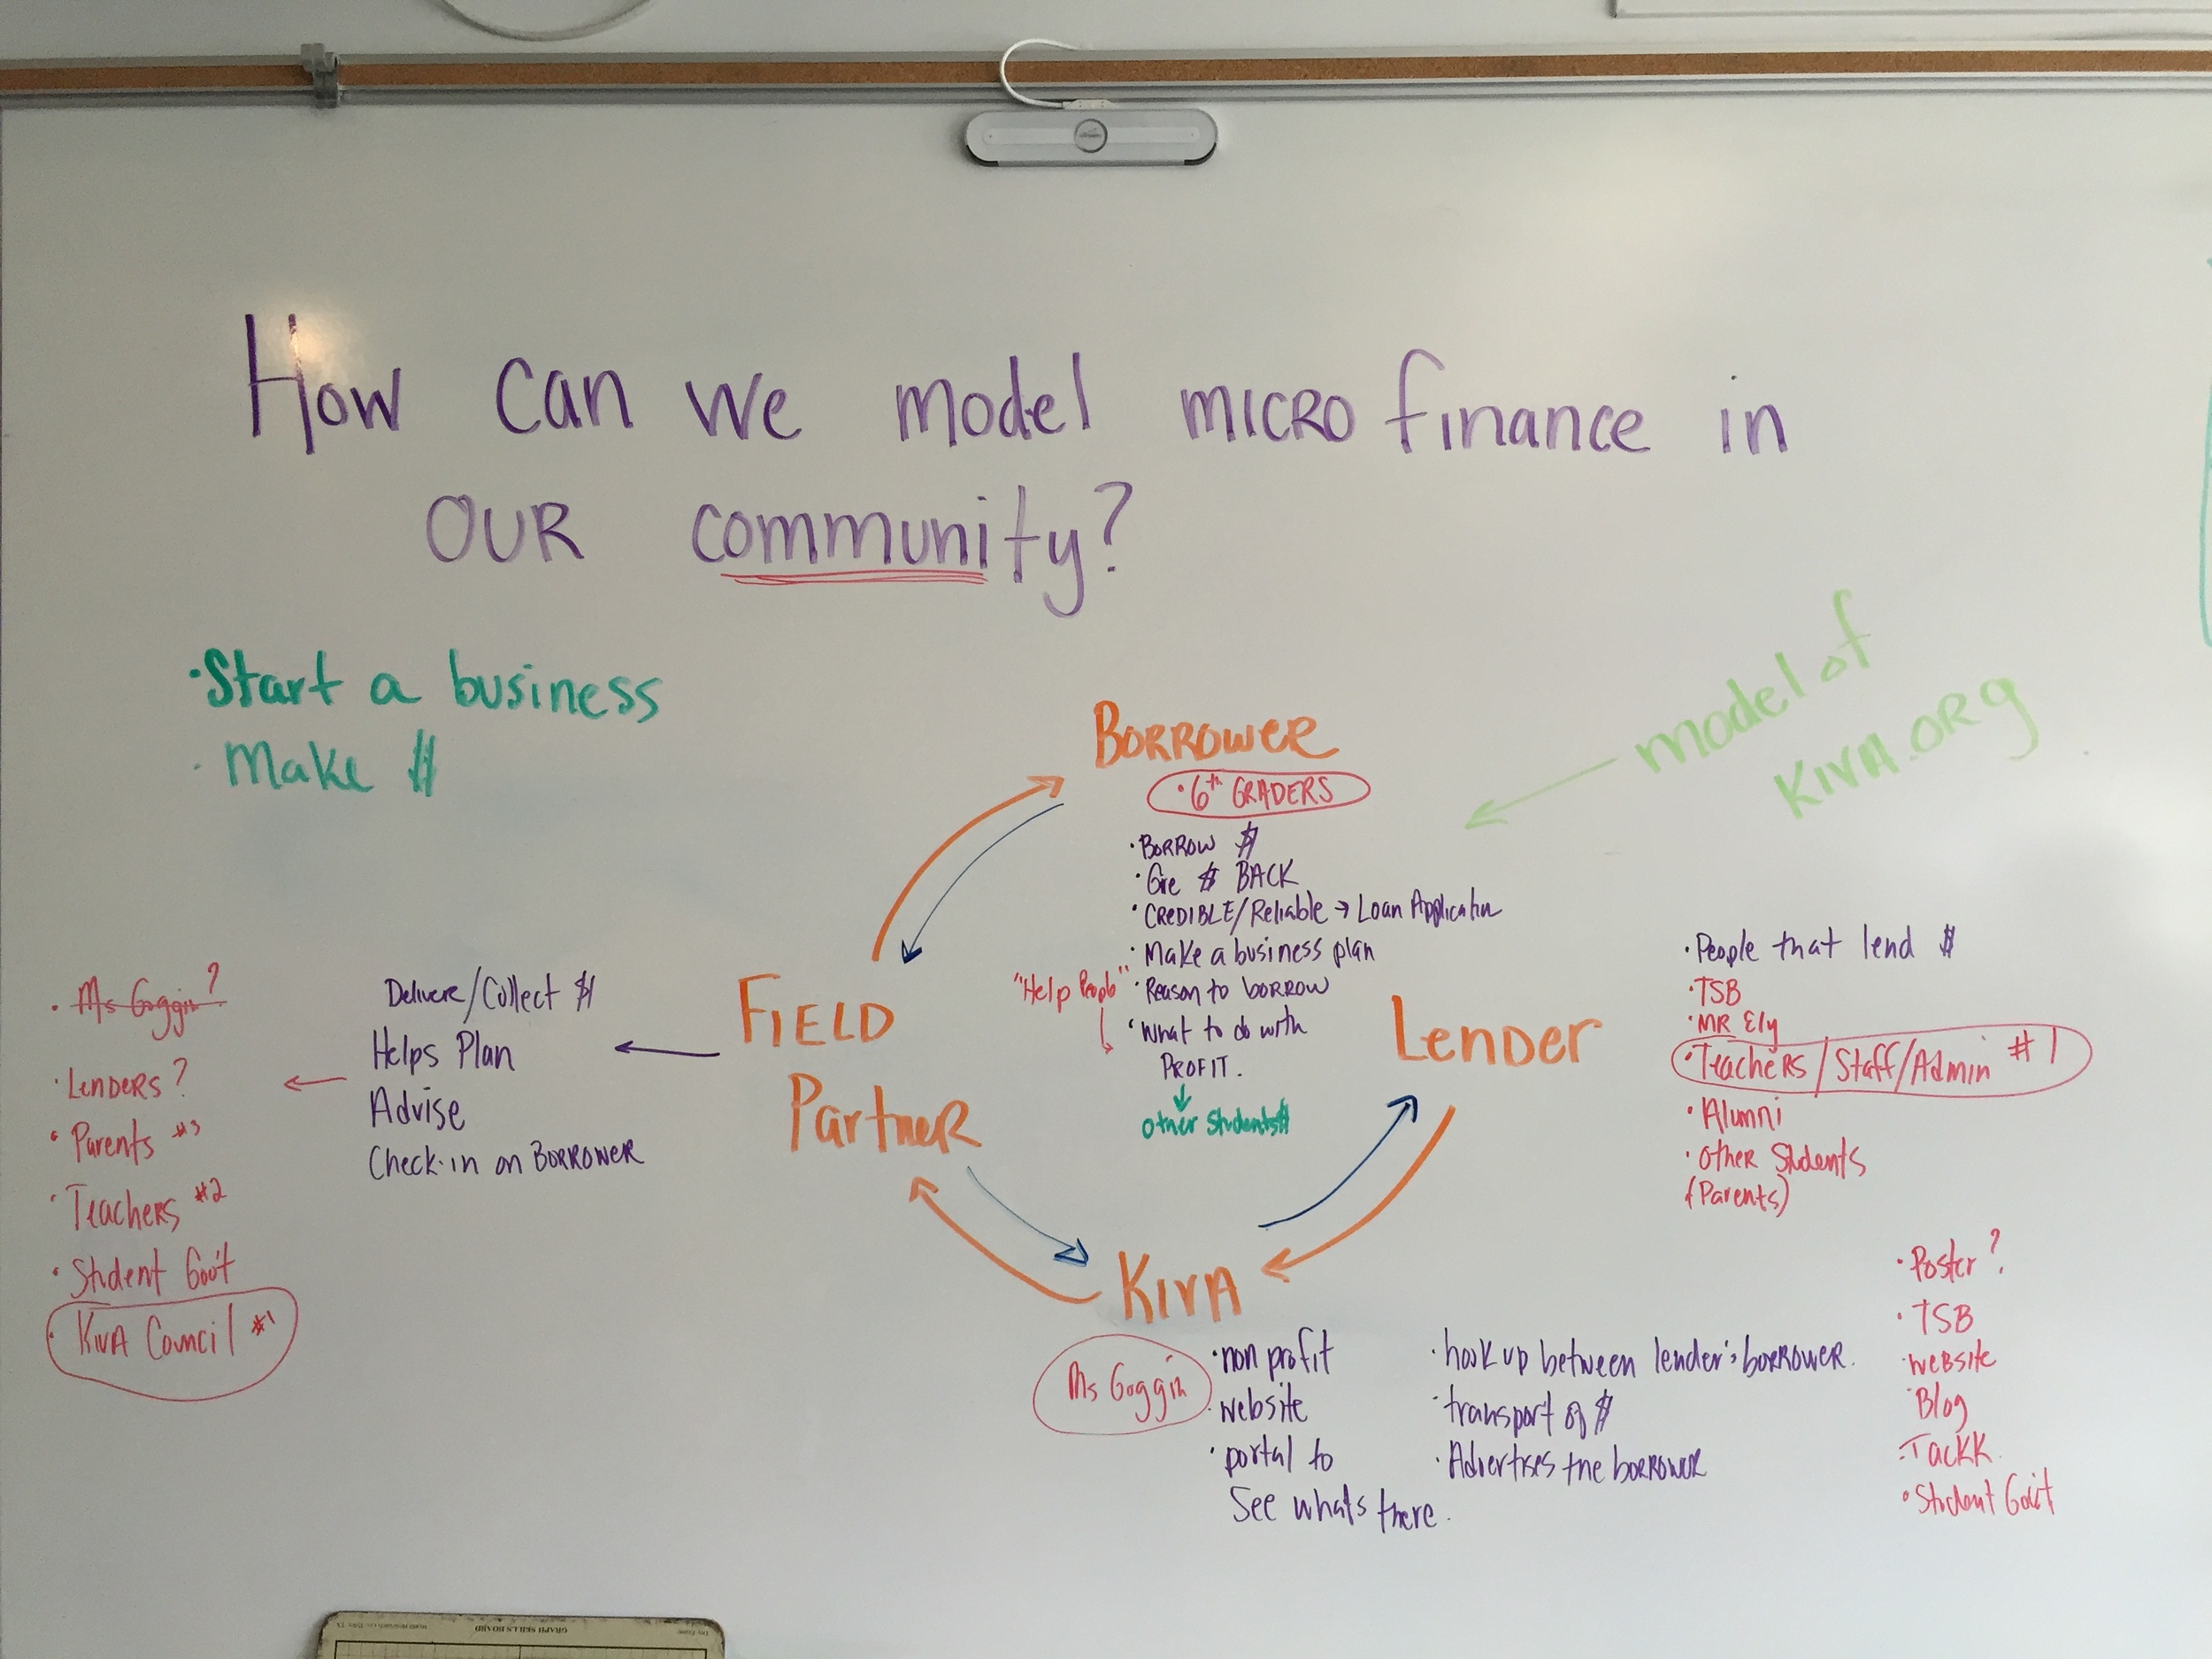 How can we model microfinance in
OUR community?
·Start a business
·Make $
model of
KIVA.ORG
BORROWER
·6th GRADERS
·BORROW $
·Give $ BACK
·CREDIBLE/Reliable → Loan Application
·Make a business plan
"Help People"
·Reason to borrow
·What to do with
PROFIT.
other students $
FIELD
Partner
Deliver/Collect $
Helps Plan
Advise
Check-in on BORROWER
·Ms Goggin?
·LENDERS?
·Parents #3
·Teachers #2
·Student Gov't
·KIVA Council #1
Lender
·People that lend $
·TSB
·MR Ely
·Teachers/Staff/Admin #1
·Alumni
·Other Students
(Parents)
KIVA
Ms Goggin
·non profit
·website
·portal to
See whats there.
·hook up between lender & borrower.
·transport of $
·Advertises the borrower
·Poster?
·TSB
·Website
·Blog
·Tackk
·Student Gov't
GRAPH SKILLS BOARD